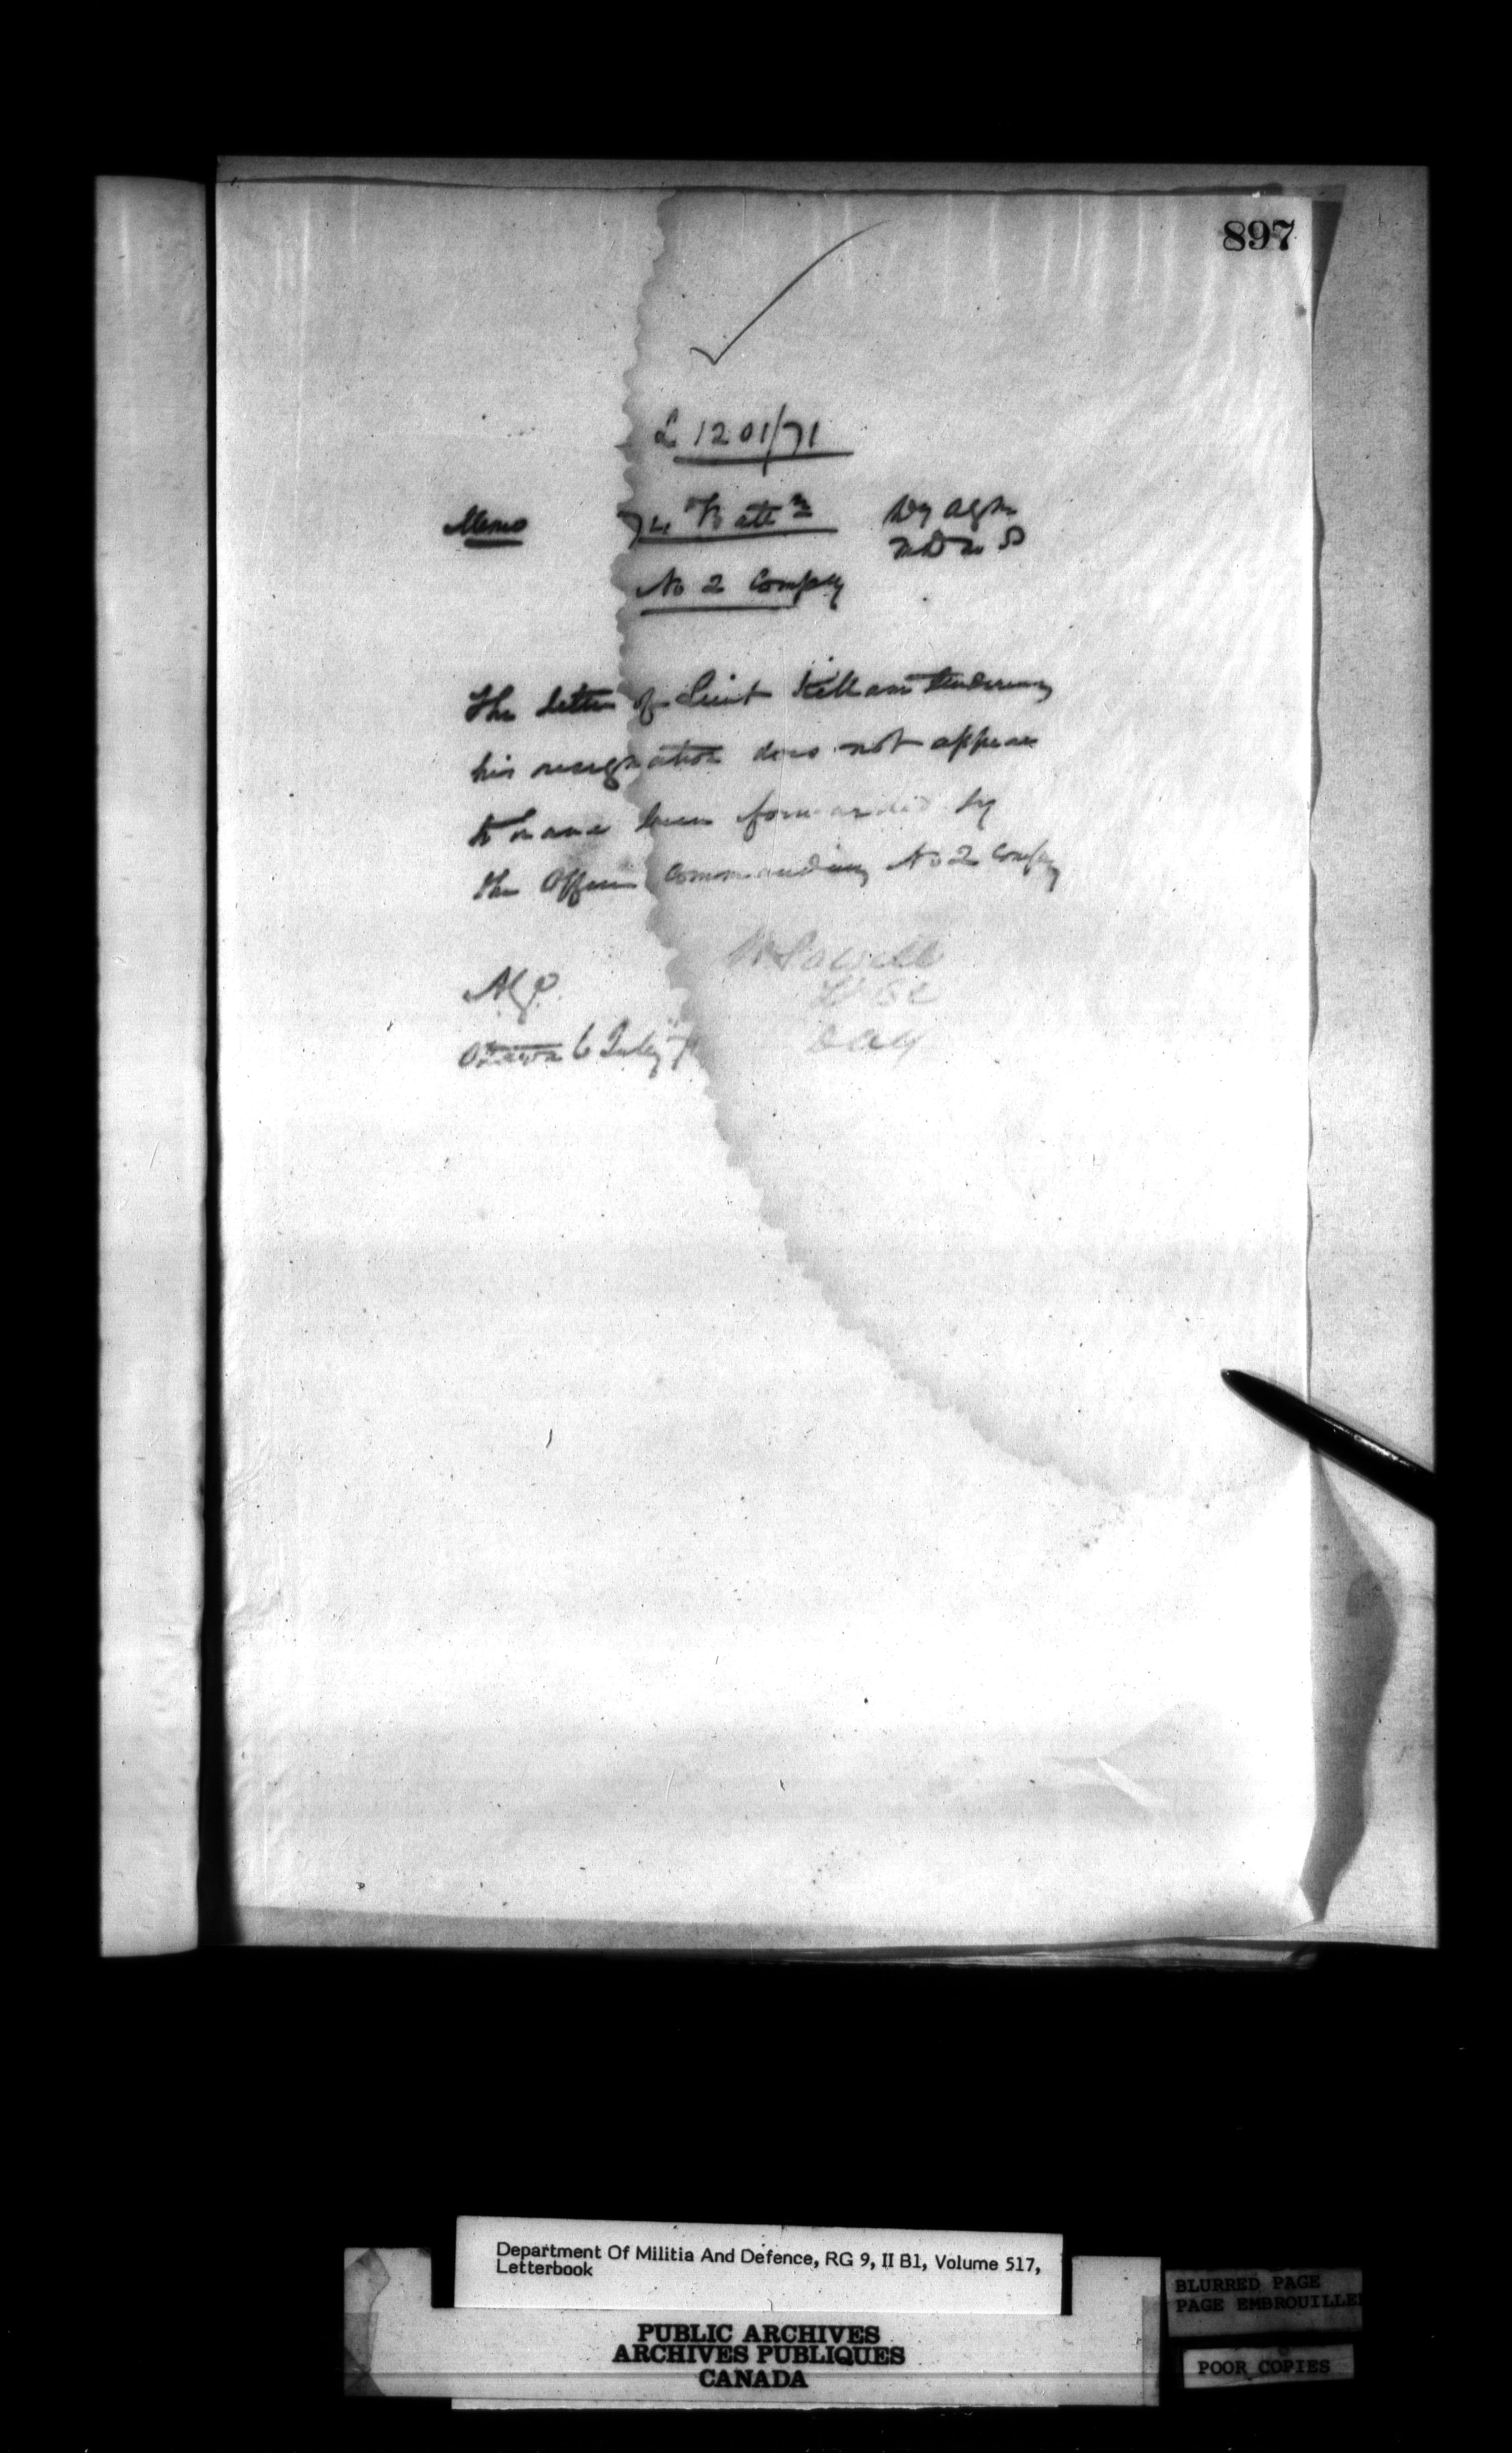 897
L 1201/71
Memo 74 Battn Dy Agm
M D No 8
No 2 Compy
The letter of Lieut Killam tendering
his resignation does not appear
to have been forwarded by
the Officer Commanding No 2 Compy
W Powell
Lt Col
DAG
Ottawa 6 July 71
Department Of Militia And Defence, RG 9, II B1, Volume 517,
Letterbook
PUBLIC ARCHIVES
ARCHIVES PUBLIQUES
CANADA
BLURRED PAGE
PAGE EMBROUILLE
POOR COPIES